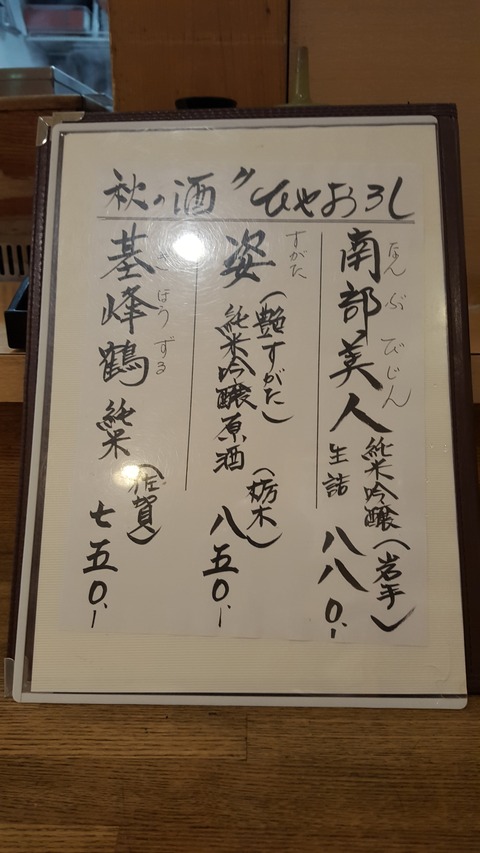 秋の酒〃ひやおろし
南部美人 純米吟醸(岩手)
なんぶびじん
生詰 八八〇.ー
姿(艶すがた)
すがた
純米吟醸原酒(栃木)
八五〇.ー
基峰鶴 純米(佐賀)
きほうずる
七五〇.ー